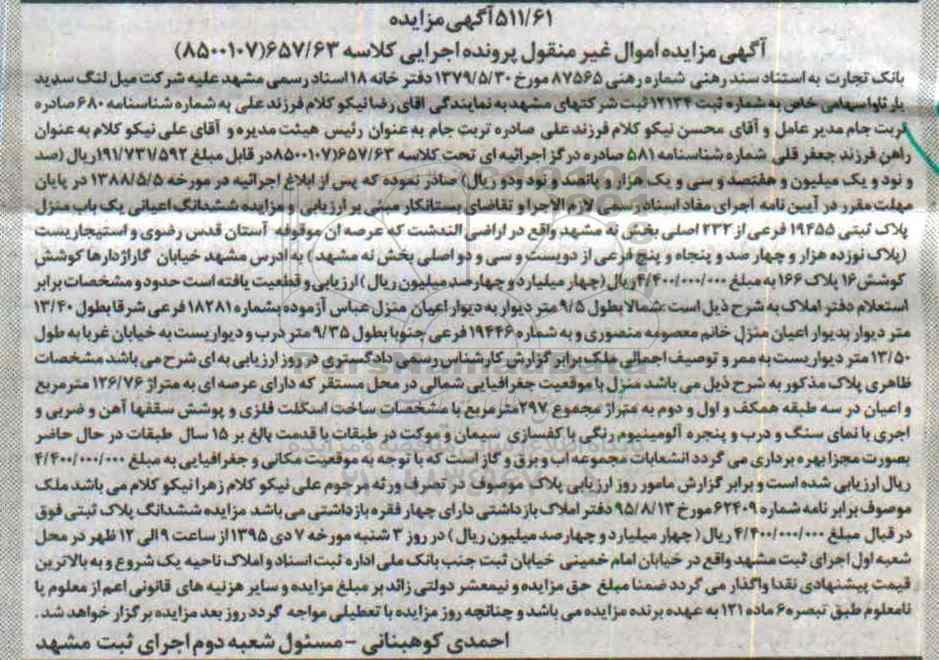 ۵۱۱/۶۱آگهی مزایده
آگهی مزایده اموال غیر منقول پرونده اجرایی کلاسه ۶۵۷/۶۳(۸۵۰۰۱۰۷)
بانک تجارت به استناد سند رهنی شماره رهنی ۸۷۵۶۵ مورخ ۱۳۷۹/۵/۳۰ دفتر خانه ۱۸اسناد رسمی مشهد علیه شرکت میل لنگ سدید
یار تاوا سهامی خاص به شماره ثبت ۱۲۱۳۴ ثبت شرکتهای مشهد به نمایندگی اقای رضا نیکو کلام فرزند علی به شماره شناسنامه ۶۸۰ صادره
تربت جام مدیر عامل و آقای محسن نیکو کلام فرزند علی صادره تربت جام به عنوان رئیس هیئت مدیره و آقای علی نیکو کلام به عنوان
راهن فرزند جعفر قلی شماره شناسنامه ۵۸۱ صادره درگز اجرائیه ای تحت کلاسه ۶۵۷/۶۳(۸۵۰۰۱۰۷در قابل مبلغ ۱۹۱/۷۳۱/۵۹۲ریال (صد
و نود و یک میلیون و هفتصد و سی و یک هزار و پانصد و نود ودو ریال) صادر نموده که پس از ابلاغ اجرائیه در مورخه ۱۳۸۸/۵/۵ در پایان
مهلت مقرر در آیین نامه اجرای مفاد اسناد رسمی لازم الاجرا و تقاضای بستانکار مبنی بر ارزیابی و مزایده ششدانگ اعیانی یک باب منزل
پلاک ثبتی ۱۹۴۵۵ فرعی از ۲۳۲ اصلی بخش نه مشهد واقع در اراضی الندشت که عرصه ان موقوفه آستان قدس رضوی و استیجاریست
(پلاک نوزده هزار و چهار صد و پنجاه و پنج فرعی از دویست و سی و دو اصلی بخش نه مشهد ) به ادرس مشهد خیابان گاراژدارها کوشش
کوشش ۱۶ پلاک ۱۶۶ به مبلغ ۴/۴۰۰/۰۰۰/۰۰۰ریال (چهار میلیارد و چهار صد میلیون ریال ) ارزیابی و قطعیت یافته است حدود و مشخصات برابر
استعلام دفتر املاک به شرح ذیل است :شمالا بطول ۹/۵ متر دیوار به دیوار اعیان منزل عباس آزموده بشماره ۱۸۲۸۱ فرعی شرقا بطول ۱۳/۴۰
متر دیوار بدیوار اعیان منزل خانم معصومه منصوری و به شماره ۱۹۴۴۶ فرعی جنوبا بطول ۹/۳۵ متر درب و دیواریست به خیابان غربا به طول
۱۳/۵۰ متر دیواریست به ممر و توصیف اجمالی ملک برابر گزارش کارشناس رسمی دادگستری در روز ارزیابی به ای شرح می باشد مشخصات
ظاهری پلاک مذکور به شرح ذیل می باشد منزل با موقعیت جغرافیایی شمالی در محل مستقر که دارای عرصه ای به متراژ ۱۲۶/۷۶ مترمربع
و اعیان در سه طبقه همکف و اول و دوم به متراژ مجموع ۲۹۷متر مربع با مشخصات ساخت اسکلت فلزی و پوشش سقفها آهن و ضربی و
اجری با نمای سنگ و درب و پنجره آلومینیوم رنگی با کفسازی سیمان و موکت در طبقات با قدمت بالغ بر ۱۵ سال طبقات در حال حاضر
بصورت مجزا بهره برداری می گردد انشعابات مجموعه اب و برق و گاز است که با توجه به موقعیت مکانی و جغرافیایی به مبلغ ۴/۴۰۰/۰۰۰/۰۰۰
ریال ارزیابی شده است و برابر گزارش مامور روز ارزیابی پلاک موصوف در تصرف ورثه مرحوم علی نیکو کلام زهرا نیکو کلام می باشد ملک
موصوف برابر نامه شماره ۶۲۴۰۹ مورخ ۹۵/۸/۱۳ دفتر املاک بازداشتی دارای چهار فقره بازداشتی می باشد مزایده ششدانگ پلاک ثبتی فوق
در قبال مبلغ ۴/۴۰۰/۰۰۰/۰۰۰ ریال ( چهار میلیارد و چهار صد میلیون ریال ) در روز ۳ شنبه مورخه ۷ دی ۱۳۹۵ از ساعت ۹ الی ۱۲ ظهر در محل
شعبه اول اجرای ثبت مشهد واقع در خیابان امام خمینی خیابان ثبت جنب بانک ملی اداره ثبت اسناد و املاک ناحیه یک شروع و به بالاترین
قیمت پیشنهادی نقدا واگذار می گردد ضمنا مبلغ حق مزایده و نیمعشر دولتی زائد بر مبلغ مزایده و سایر هزنیه های قانونی اعم از معلوم یا
نامعلوم طبق تبصره ۶ ماده ۱۲۱ به عهده برنده مزایده می باشد و چنانچه روز مزایده با تعطیلی مواجه گردد روز بعد مزایده برگزار خواهد شد .
احمدی کوهبنانی - مسئول شعبه دوم اجرای ثبت مشهد